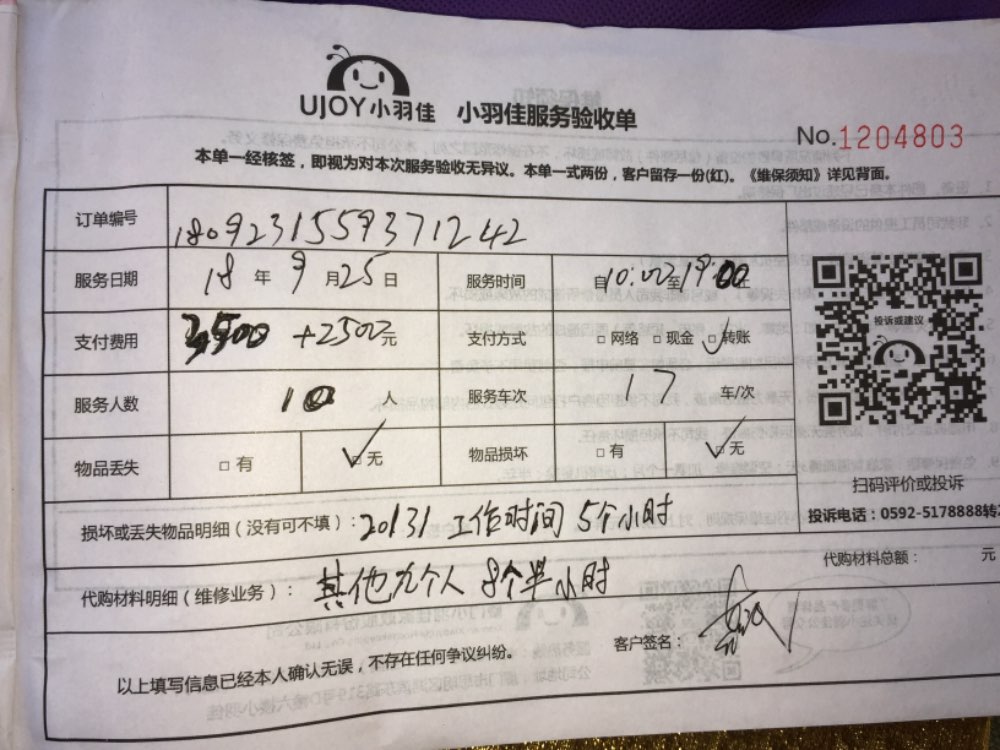 UJOY小羽佳 小羽佳服务验收单
No.1204803
本单一经核签，即视为对本次服务验收无异议。本单一式两份，客户留存一份(红)。《维保须知》详见背面。
订单编号 1809231559371242
服务日期 18年9月25日 服务时间 自10:00至19:00
支付费用 3500+2500元 支付方式 □网络 □现金 □转账
服务人数 10人 服务车次 17车/次
物品丢失 □有 □无 物品损坏 □有 □无
投诉或建议
扫码评价或投诉
投诉电话：0592-5178888转
损坏或丢失物品明细（没有可不填）：20131工作时间5个小时
代购材料总额： 元
代购材料明细（维修业务）：其他九个人8个半小时
客户签名：
以上填写信息已经本人确认无误，不存在任何争议纠纷。